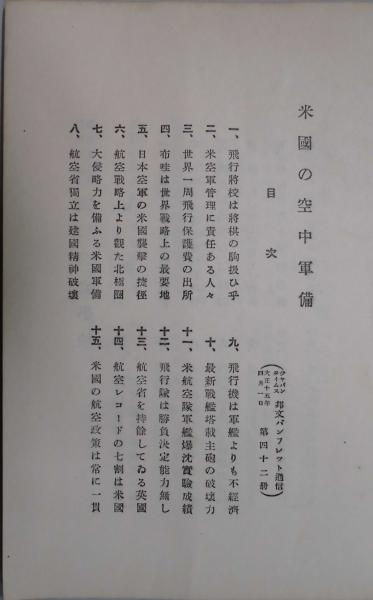 米國の空中軍備
目次
(ジャパンタイムス 大正十五年四月一日 邦文パンフレット通信 第四十二册)
一、飛行將校は將棋の駒扱ひ乎
二、米空軍管理に責任ある人々
三、世界一周飛行保護費の出所
四、布哇は世界戰略上の最要地
五、日本空軍の米國襲擊の捷徑
六、航空戰略上より觀た北極圈
七、大侵略力を備ふる米國軍備
八、航空省獨立は建國精神破壞
九、飛行機は軍艦よりも不經濟
十、最新戰艦塔載主砲の破壞力
十一、米航空隊軍艦爆沈實驗成績
十二、飛行隊は勝負決定能力無し
十三、航空省を持餘してゐる英國
十四、航空レコードの七割は米國
十五、米國の航空政策は常に一貫